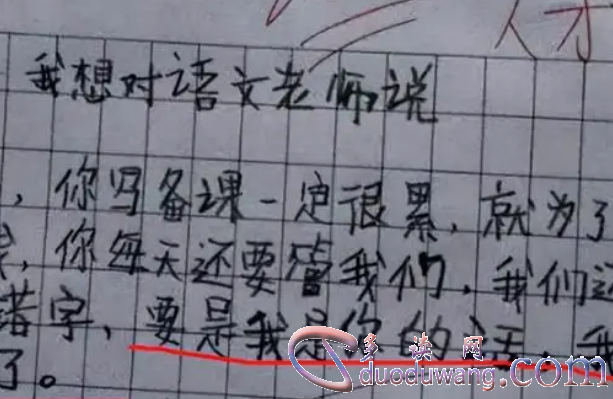 人才
我想对语文老师说
，你写备课一定很累，就为了
，你每天还要管我们，我们这
错字，要是我是你的话，我
了。
多读网
duoduwang.com